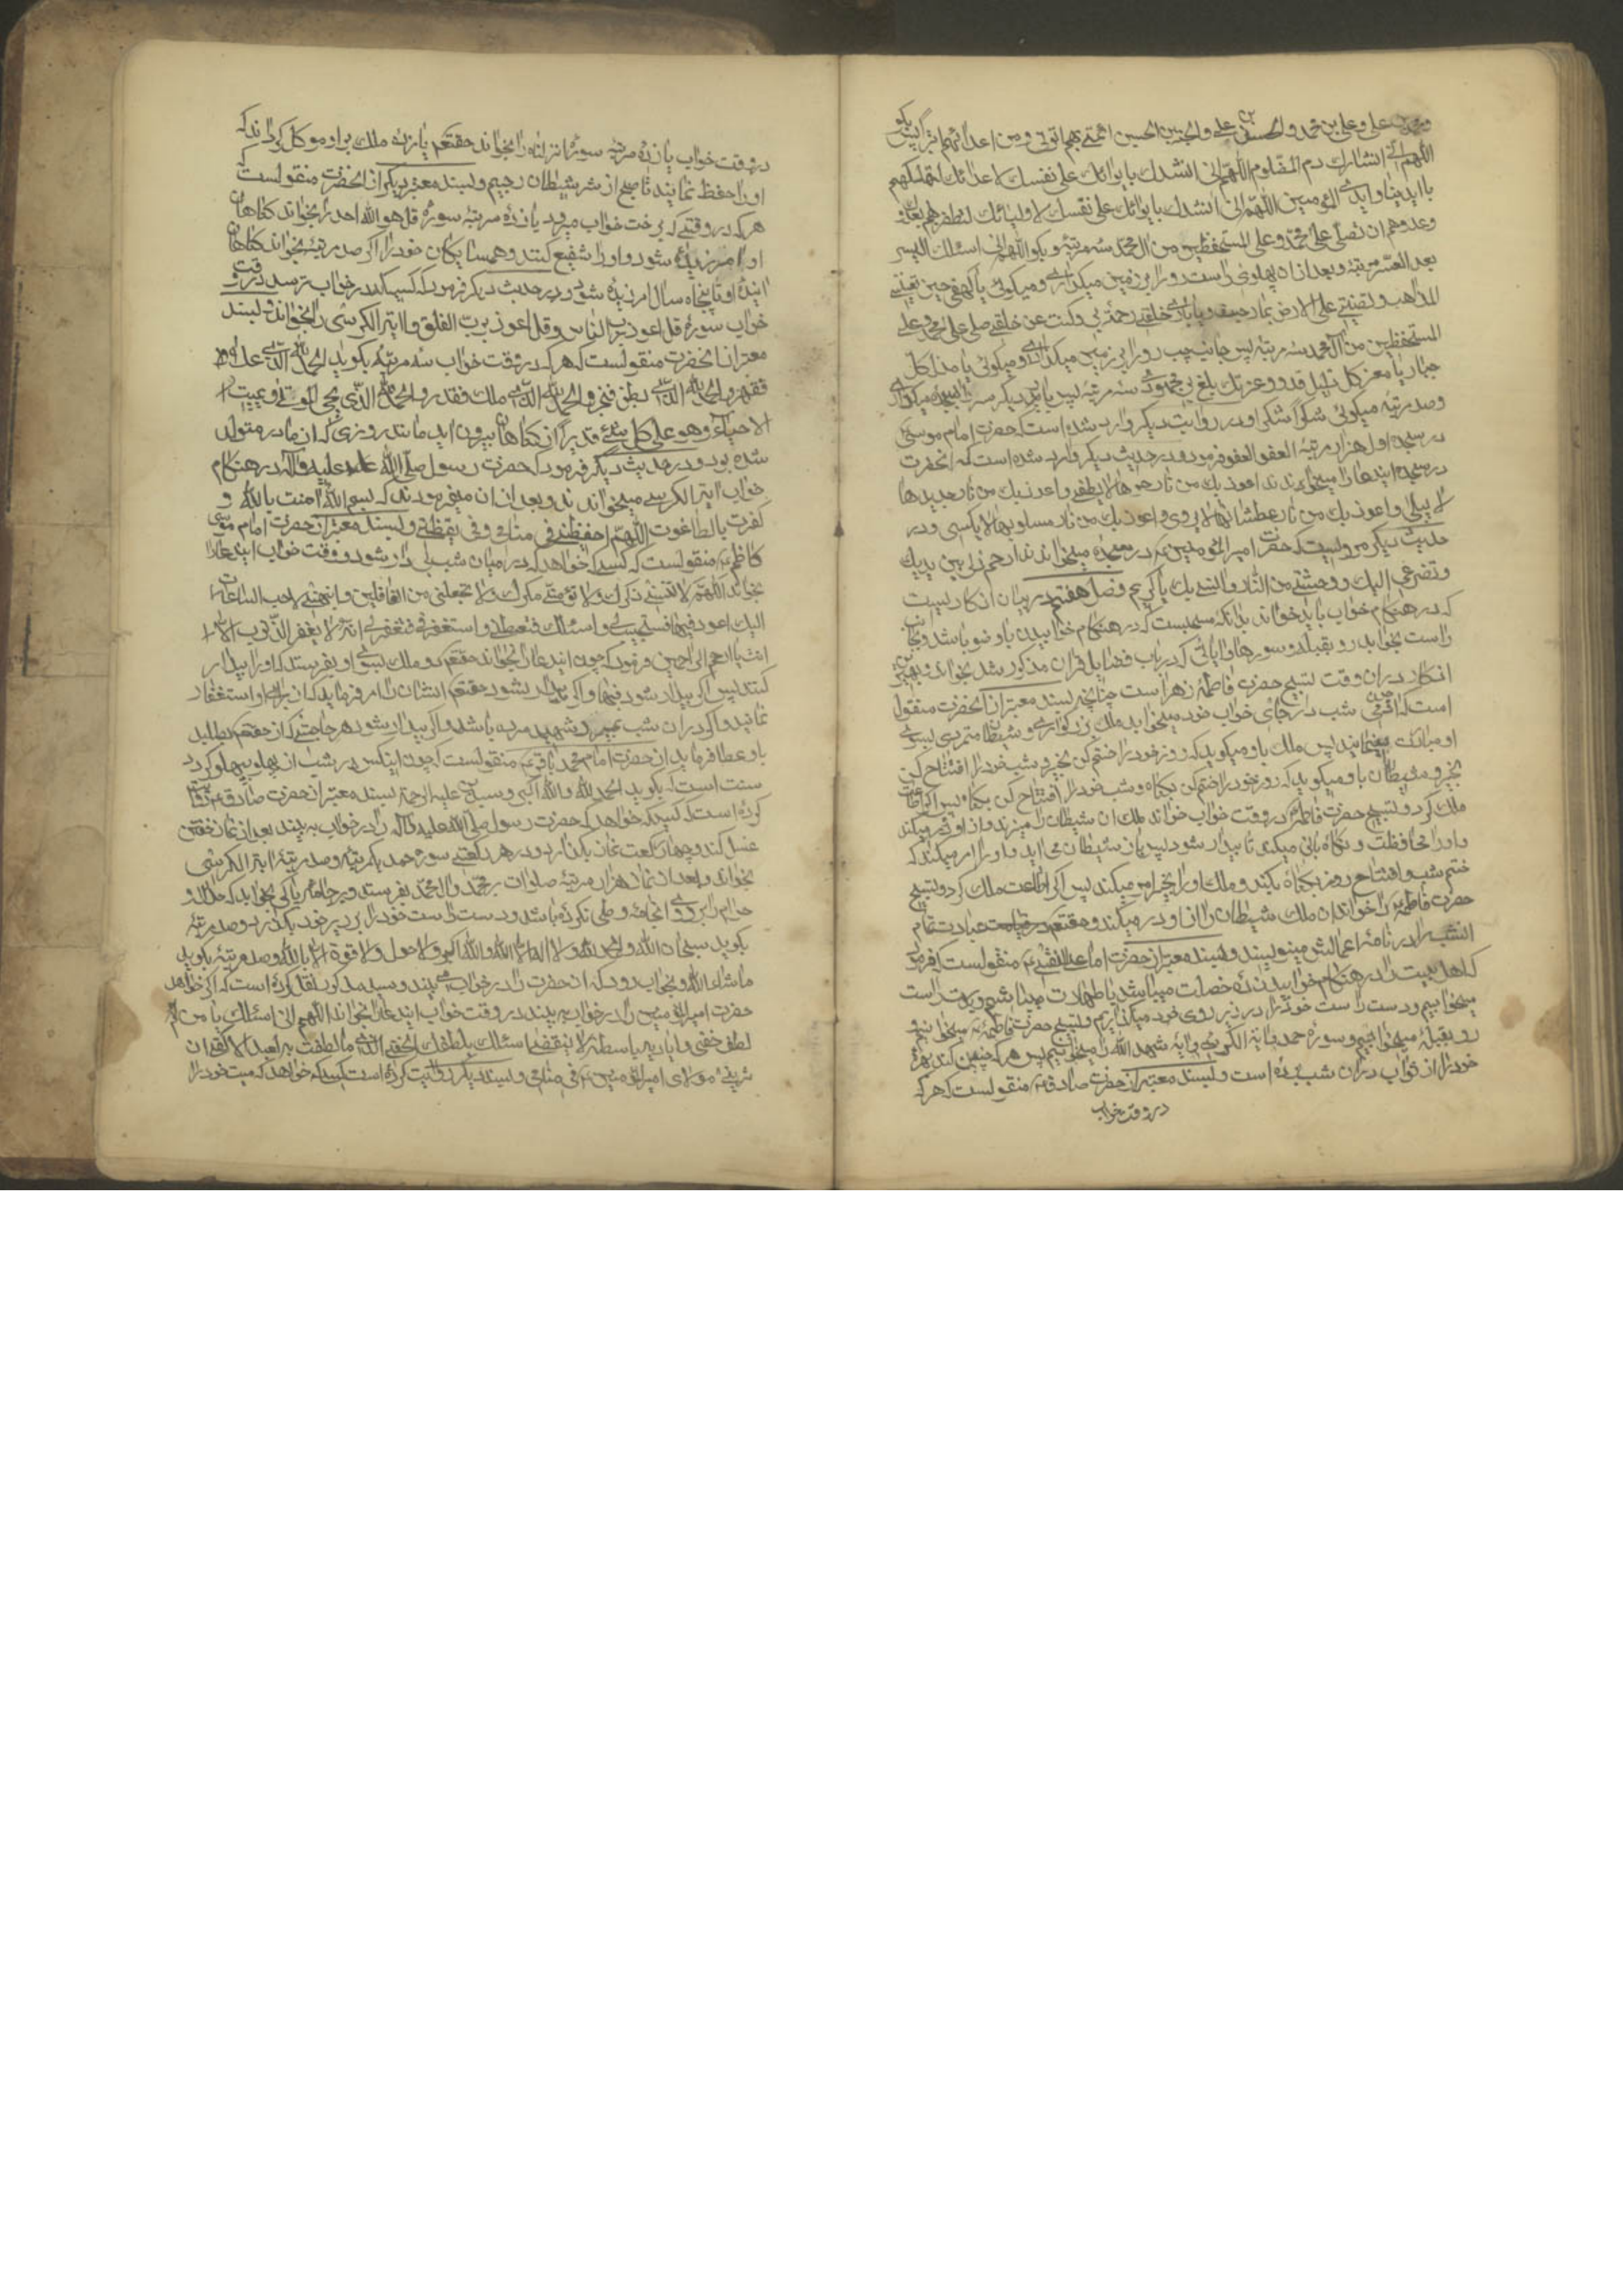 علی وعلی بن محمد والحسن بن علی والحجة بن الحسن ائمتی بهم اتولی ومن اعدائهم اتبرا پس بکو
اللهم انی انشدك دم المظلوم اللهم انی انشدك بایوائك علی نفسك لاعدائك لتهلکنهم
بایدینا وایدی المؤمنین اللهم انی انشدك بایوائك علی نفسك لاولیائك لتظفرنهم بعدوك
وعدوهم ان تصلی علی محمد وعلی المستحفظین من ال محمد سه مرتبه وبکو اللهم انی اسئلك الیسر
بعد العسر سه مرتبه وبعد ازان پهلوی راست رو را بر زمین میکذاری ومیکوئی یا کهفی حین تعیینی
المذاهب وتضیق علی الارض بما رحبت ویا باری خلقی رحمة بی وکنت عن خلقی صل علی محمد وعلی
المستحفظین من ال محمد سه مرتبه پس جانب چپ رو را بر زمین میکذاری ومیکوئی یا مذل کل
جبار یا معز کل ذلیل قد وعزتك بلغ بی مجهودی سه مرتبه پس بار دیکر سر را بسجده میکذاری
وصد مرتبه میکوئی شکرا شکرا ودر روایت دیکر وارد شده است حضرت امام موسی
در سجده اول هزار مرتبه العفو العفو فرمود ودر حدیث دیکر وارد شده است که انحضرت
در سجده ایندعا را میخواندند اعوذ بك من نار حرها لا یطفی واعوذ بك من نار جدیدها
لا یبلی واعوذ بك من نار عطشانها لا یروی واعوذ بك من نار مسلوبها لا یکسی ودر
حدیث دیکر مرویست که حضرت امیر المؤمنین ع در سجده میخواندند ارحم ذلی بین یدیك
وتضرعی الیك ووحشتی من الناس وانسی بك یا کریم فصل هفتم در بیان اذکاریست
که در هنکام خواب باید خواند بدانکه سنتست که در هنکام خوابیدن با وضو باشد وبجانب
راست بخوابد رو بقبله وسورها وایاتی که در باب فضایل قران مذکور شد بخواند وبهترین
اذکار دران وقت تسبیح حضرت فاطمه زهراست چنانچه بسند معتبر از انحضرت منقول
است که ادمی شب در جای خواب خود میخوابد ملك بزرکواری وشیطان متمردی بسوی
او مبادرت مینمایند پس ملك باو میکوید که روز خود را ختم کن بخیر وشب خود را افتتاح کن
بخیر وشیطان باو میکوید که روز خود را ختم کن بکناه وشب خود را افتتاح کن بکناه پس اکر اطاعت
ملك کرد وتسبیح حضرت فاطمه در وقت خواب خواند ملك ان شیطان را میزند واز او دور میکند
واو را محافظت ونکاه بانی میکند تا بیدار شود پس باز شیطان می اید واو را امر میکند که
ختم شب وافتتاح روز بکناه بکند وملك او را بخیر امر میکند پس اکر اطاعت ملك کرد وتسبیح
حضرت فاطمه را خواند ان ملك شیطان را از او دور میکند وحقتعم عبادت تمام
انشب را در نامه اعمالش مینویسند وبسند معتبر از حضرت امام علی النقی ع منقولست که فرمود
که اهل بیت را در هنکام خوابیدن ده خصلت میباشد با طهارت میباشیم وبدست راست
میخوابیم ودست راست خود را در زیر روی خود میکذاریم وتسبیح حضرت فاطمه ع میخوانیم و
رو بقبله میخوابیم وسوره حمد وایة الکرسی وایه شهد الله را میخوانیم پس هر که چنین کند بهره
خود را از ثواب دران شب برده است وبسند معتبر از حضرت صادق ع منقولست که هر که
در وقت خواب
در وقت خواب یازده مرتبه سوره انا انزلناه را بخواند حقتعم یازده ملك براو موکل کرداند که
او را حفظ نمایند تا صبح از شر شیطان رجیم وبسند معتبر دیکر از انحضرت منقولست که
هر که در وقتی که برخت خواب میرود یازده مرتبه سوره قل هو الله احد را بخواند کناهان
او امرزیده شود واو را شفیع کنند وهمسایکان خود را اکر صد مرتبه بخواند کناهان
اینده او تا پنجاه سال امرزیده شود ودر حدیث دیکر فرمود که کسیکه در خواب ترسد در وقت
خواب سوره قل اعوذ برب الناس وقل اعوذ برب الفلق وایة الکرسی را بخواند وبسند
معتبر از انحضرت منقولست که هر که در وقت خواب سه مرتبه بکوید الحمد لله الذی علا
فقهر والحمد لله الذی بطن فخبر والحمد لله الذی ملك فقدر والحمد لله الذی یحیی الموتی ویمیت
الاحیاء وهو علی کل شیء قدیر از کناهان بیرون اید مانند روزی که از مادر متولد
شده بود ودر حدیث دیکر فرمود که حضرت رسول صلی الله علیه واله در هنکام
خواب ایة الکرسی میخواندند وبعد ازان میفرمودند که بسم الله امنت بالله و
کفرت بالطاغوت اللهم احفظنی فی منامی وفی یقظتی وبسند معتبر از حضرت امام موسی
کاظم ع منقولست که کسیکه خواهد که در میان شب بیدار شود در وقت خواب ایندعا را
بخواند اللهم لا تنسنی ذکرك ولا تؤمنی مکرك ولا تجعلنی من الغافلین وانبهنی لاحب الساعات
الیك ادعوك فیها فتستجیب لی واسئلك فتعطینی واستغفرك فتغفر لی انه لا یغفر الذنوب الا
انت یا ارحم الراحمین فرمود که چون ایندعا را بخواند حقتعم دو ملك بسوی او بفرستد که او را بیدار
کنند پس اکر بیدار شود فبها واکر بیدار نشود حقتعم ایشان را امر فرماید که از برای او استغفار
نمایند واکر دران شب بمیرد شهید مرده باشد واکر بیدار شود هر حاجتی که از حقتعم بطلبد
باو عطا فرماید از حضرت امام محمد باقر ع منقولست که چون اینکس در شب از پهلو بپهلو کردد
سنت است که بکوید الحمد لله والله اکبر وسید علیه الرحمة بسند معتبر از حضرت صادق ع روایت
کرده است که کسیکه خواهد که حضرت رسول صلی الله علیه واله را در خواب به بیند بعد از نماز خفتن
غسل کند وچهار رکعت نماز بکذارد ودر هر رکعتی سوره حمد یکمرتبه وصد مرتبه ایة الکرسی
بخواند وبعد از نماز هزار مرتبه صلوات بر محمد وال محمد بفرستد وبر جامه پاکی بخوابد که حلال و
حرام را بر روی انجامه وطی نکرده باشد ودست راست خود را بر زیر خود بکذارد وصد مرتبه
بکوید سبحان الله والحمد لله ولا اله الا الله والله اکبر ولا حول ولا قوة الا بالله وصد مرتبه بکوید
ماشاء الله وبخواب رود که ان حضرت را در خواب می بیند وسید مذکور نقل کرده است که اکر خواهد
حضرت امیر المؤمنین را در خواب به بیند در وقت خواب ایندعا را بخواند اللهم انی اسئلك یا من له
لطف خفی وایادیه باسطة لا تنقضی اسئلك بلطفك الخفی الذی ما لطفت به لعبد الا کفی ان
ترینی مولای امیر المؤمنین ع فی منامی وبسند دیکر روایت کرده است کسیکه خواهد که میت خود را